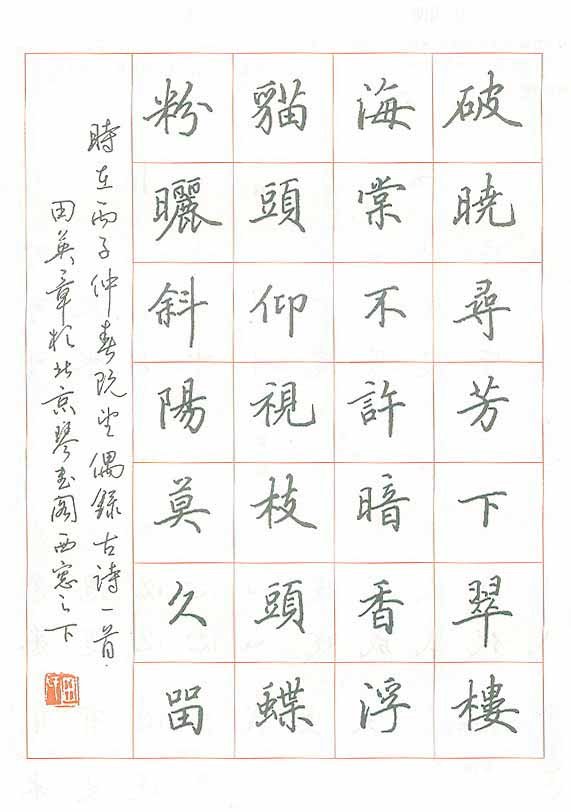 破曉尋芳下翠樓
海棠不許暗香浮
貓頭仰視枝頭蝶
粉曬斜陽莫久畄
時在丙子仲春既望偶録古詩一首
田英章於北京琴玉閣西窓之下